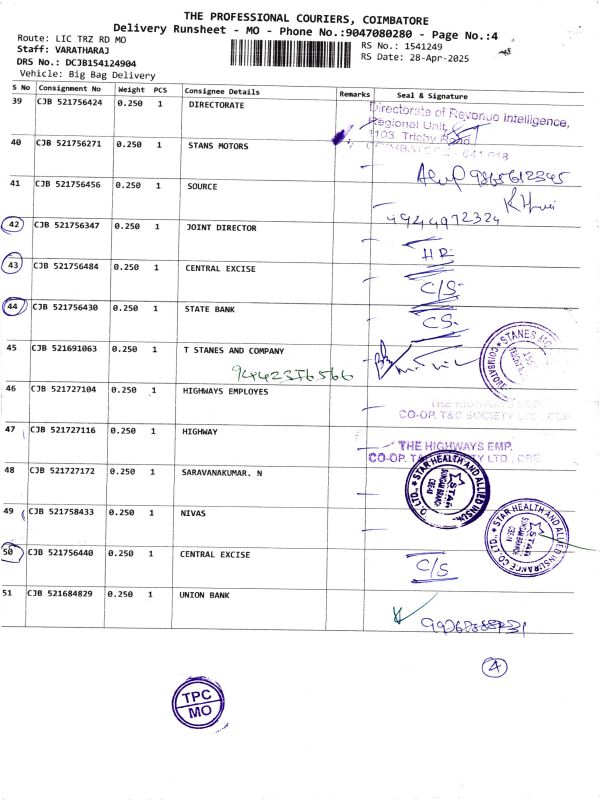 THE PROFESSIONAL COURIERS, COIMBATORE
Delivery Runsheet - MO - Phone No.:9047080280 - Page No.:4
Route: LIC TRZ RD MO
RS No.: 1541249
Staff: VARATHARAJ
RS Date: 28-Apr-2025
DRS No.: DCJB154124904
Vehicle: Big Bag Delivery
S No Consignment No Weight PCS Consignee Details Remarks Seal & Signature
39 CJB 521756424 0.250 1 DIRECTORATE
Directorate of Revenue Intelligence,
Regional Unit,
1103, Trichy Road,
641 018
40 CJB 521756271 0.250 1 STANS MOTORS
41 CJB 521756456 0.250 1 SOURCE
4944972324
42 CJB 521756347 0.250 1 JOINT DIRECTOR
HR
43 CJB 521756484 0.250 1 CENTRAL EXCISE
C/S
44 CJB 521756430 0.250 1 STATE BANK
CS
45 CJB 521691063 0.250 1 T STANES AND COMPANY
9442376566
46 CJB 521727104 0.250 1 HIGHWAYS EMPLOYES
THE HIGHWAYS EMP.
CO-OP. T&C SOCIETY LTD., CBE
47 CJB 521727116 0.250 1 HIGHWAY
THE HIGHWAYS EMP.
CO-OP. T&C SOCIETY LTD., CBE
48 CJB 521727172 0.250 1 SARAVANAKUMAR. N
STAR HEALTH AND ALLIED INSU
CO. LTD.,
STAR
49 CJB 521758433 0.250 1 NIVAS
STAR HEALTH AND ALLIED INSURANCE CO. LTD.,
STAR
50 CJB 521756440 0.250 1 CENTRAL EXCISE
C/S
51 CJB 521684829 0.250 1 UNION BANK
4
TPC
MO